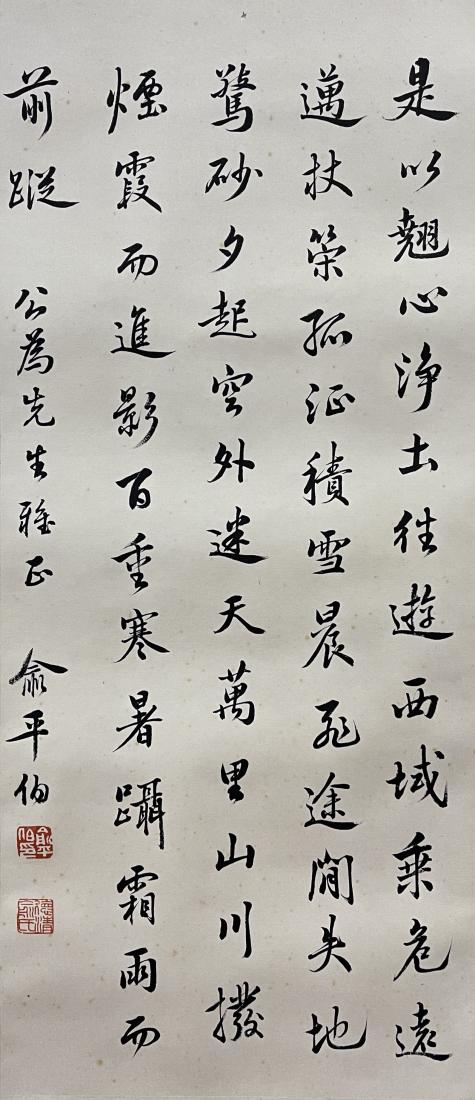 是以翹心浄土往遊西域乗危遠
邁杖策孤征積雪晨飛途間失地
驚砂夕起空外迷天萬里山川撥
煙霞而進影百重寒暑躡霜雨而
前蹤
公為先生雅正
俞平伯
俞平伯印
德清俞氏